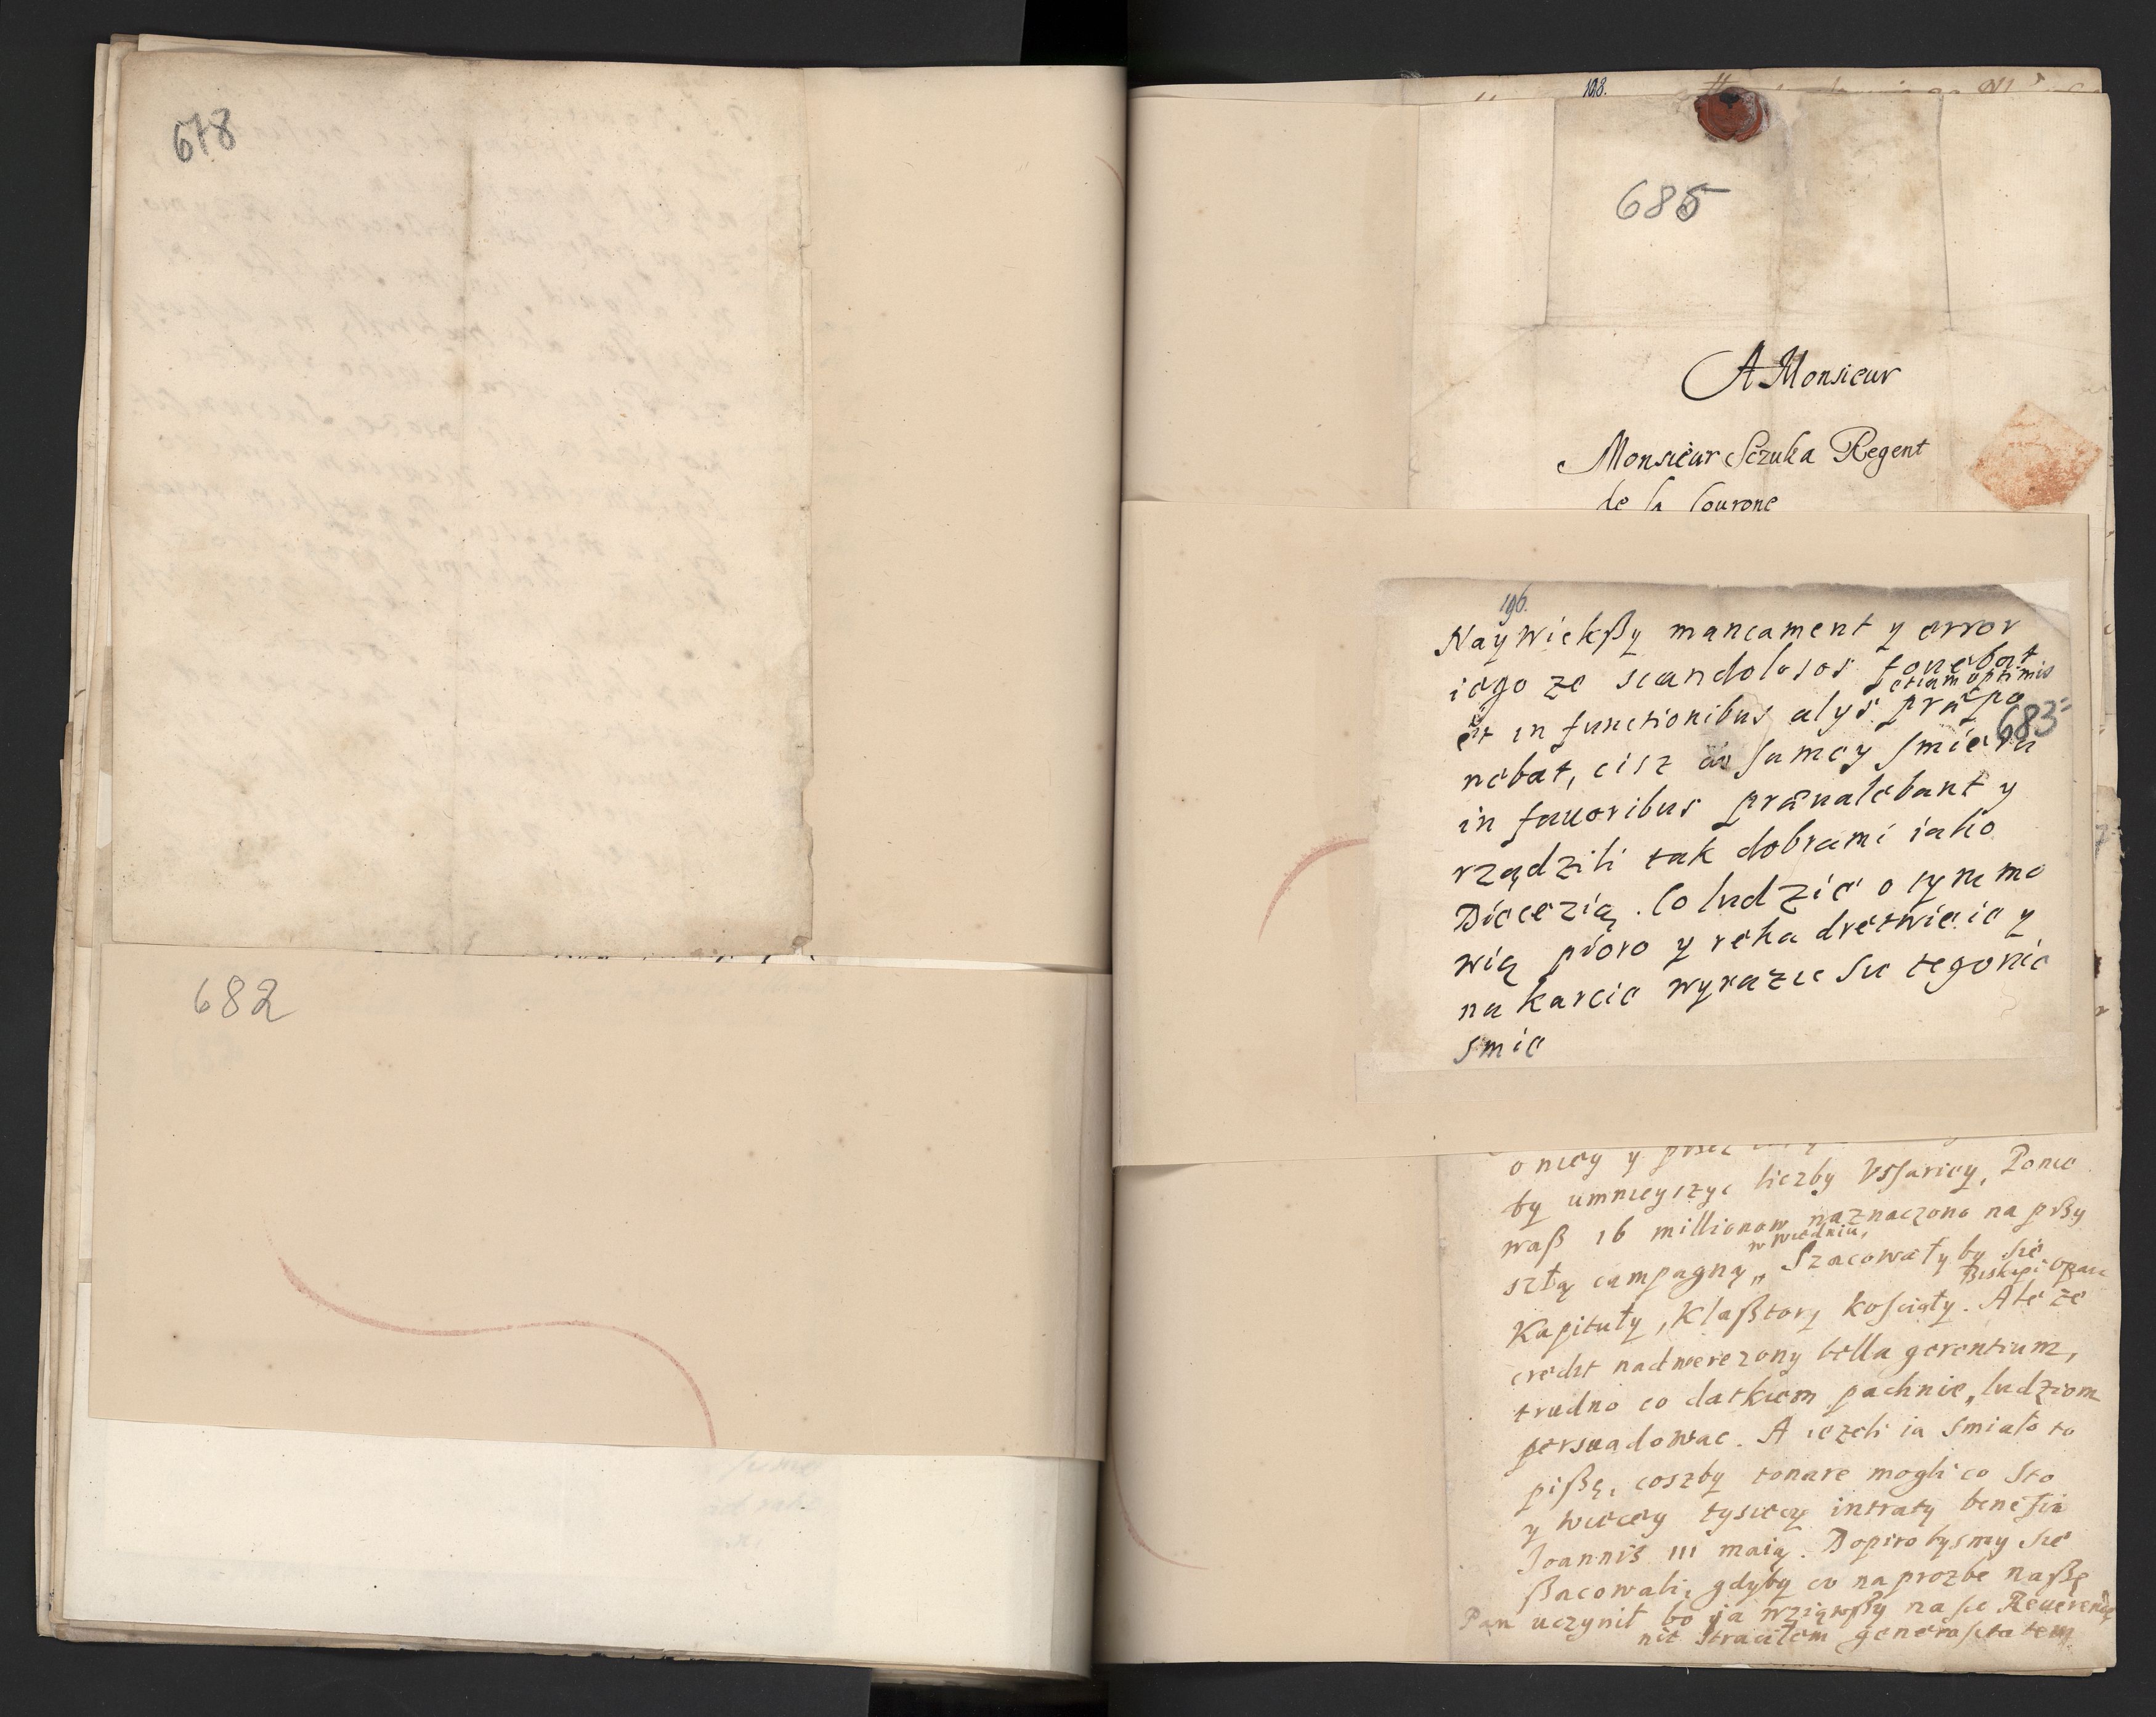 678
682
108.
685
A Monsieur
Monsieur Sczuka Regent
de la Courone
196.
Naywiekßy mancament y error
iego ze scandolosos fouebat
etiam optimis
et in functionibus alys præpo
683
nebat, cisz do samey smierci
in fauoribus præualebant y
rządzili tak dobrami iako
Diecezią. Co ludzie o tym mo
wią pioro y reka dretwieie y
na karcie wyrazic sie tego nie
smie
o niey y przez
by umnieyszyc liczby Vssariey, Ponie
waß 16 millionow naznaczono na prßy
w Wiedniu,
szłą campagnę, Szacowały by sie
Biskupi Opaci
Kapituły, Klaßtory kościoły. Ale ze
credit nadwerezony bella gerentium,
trudno co datkiem pachnie, ludziom
persuadowac. A iezeli ia smiało to
pißę, coszby tonare mogli co sto
y wiecey tysiecy intraty benefia
Joannis III maią. Dopiro bysmy sie
ßacowali, gdyby co na prozbe naßę
Pan uczynił bo ia wziąwßy na sie Reuerendę
nie straciłem generositatem